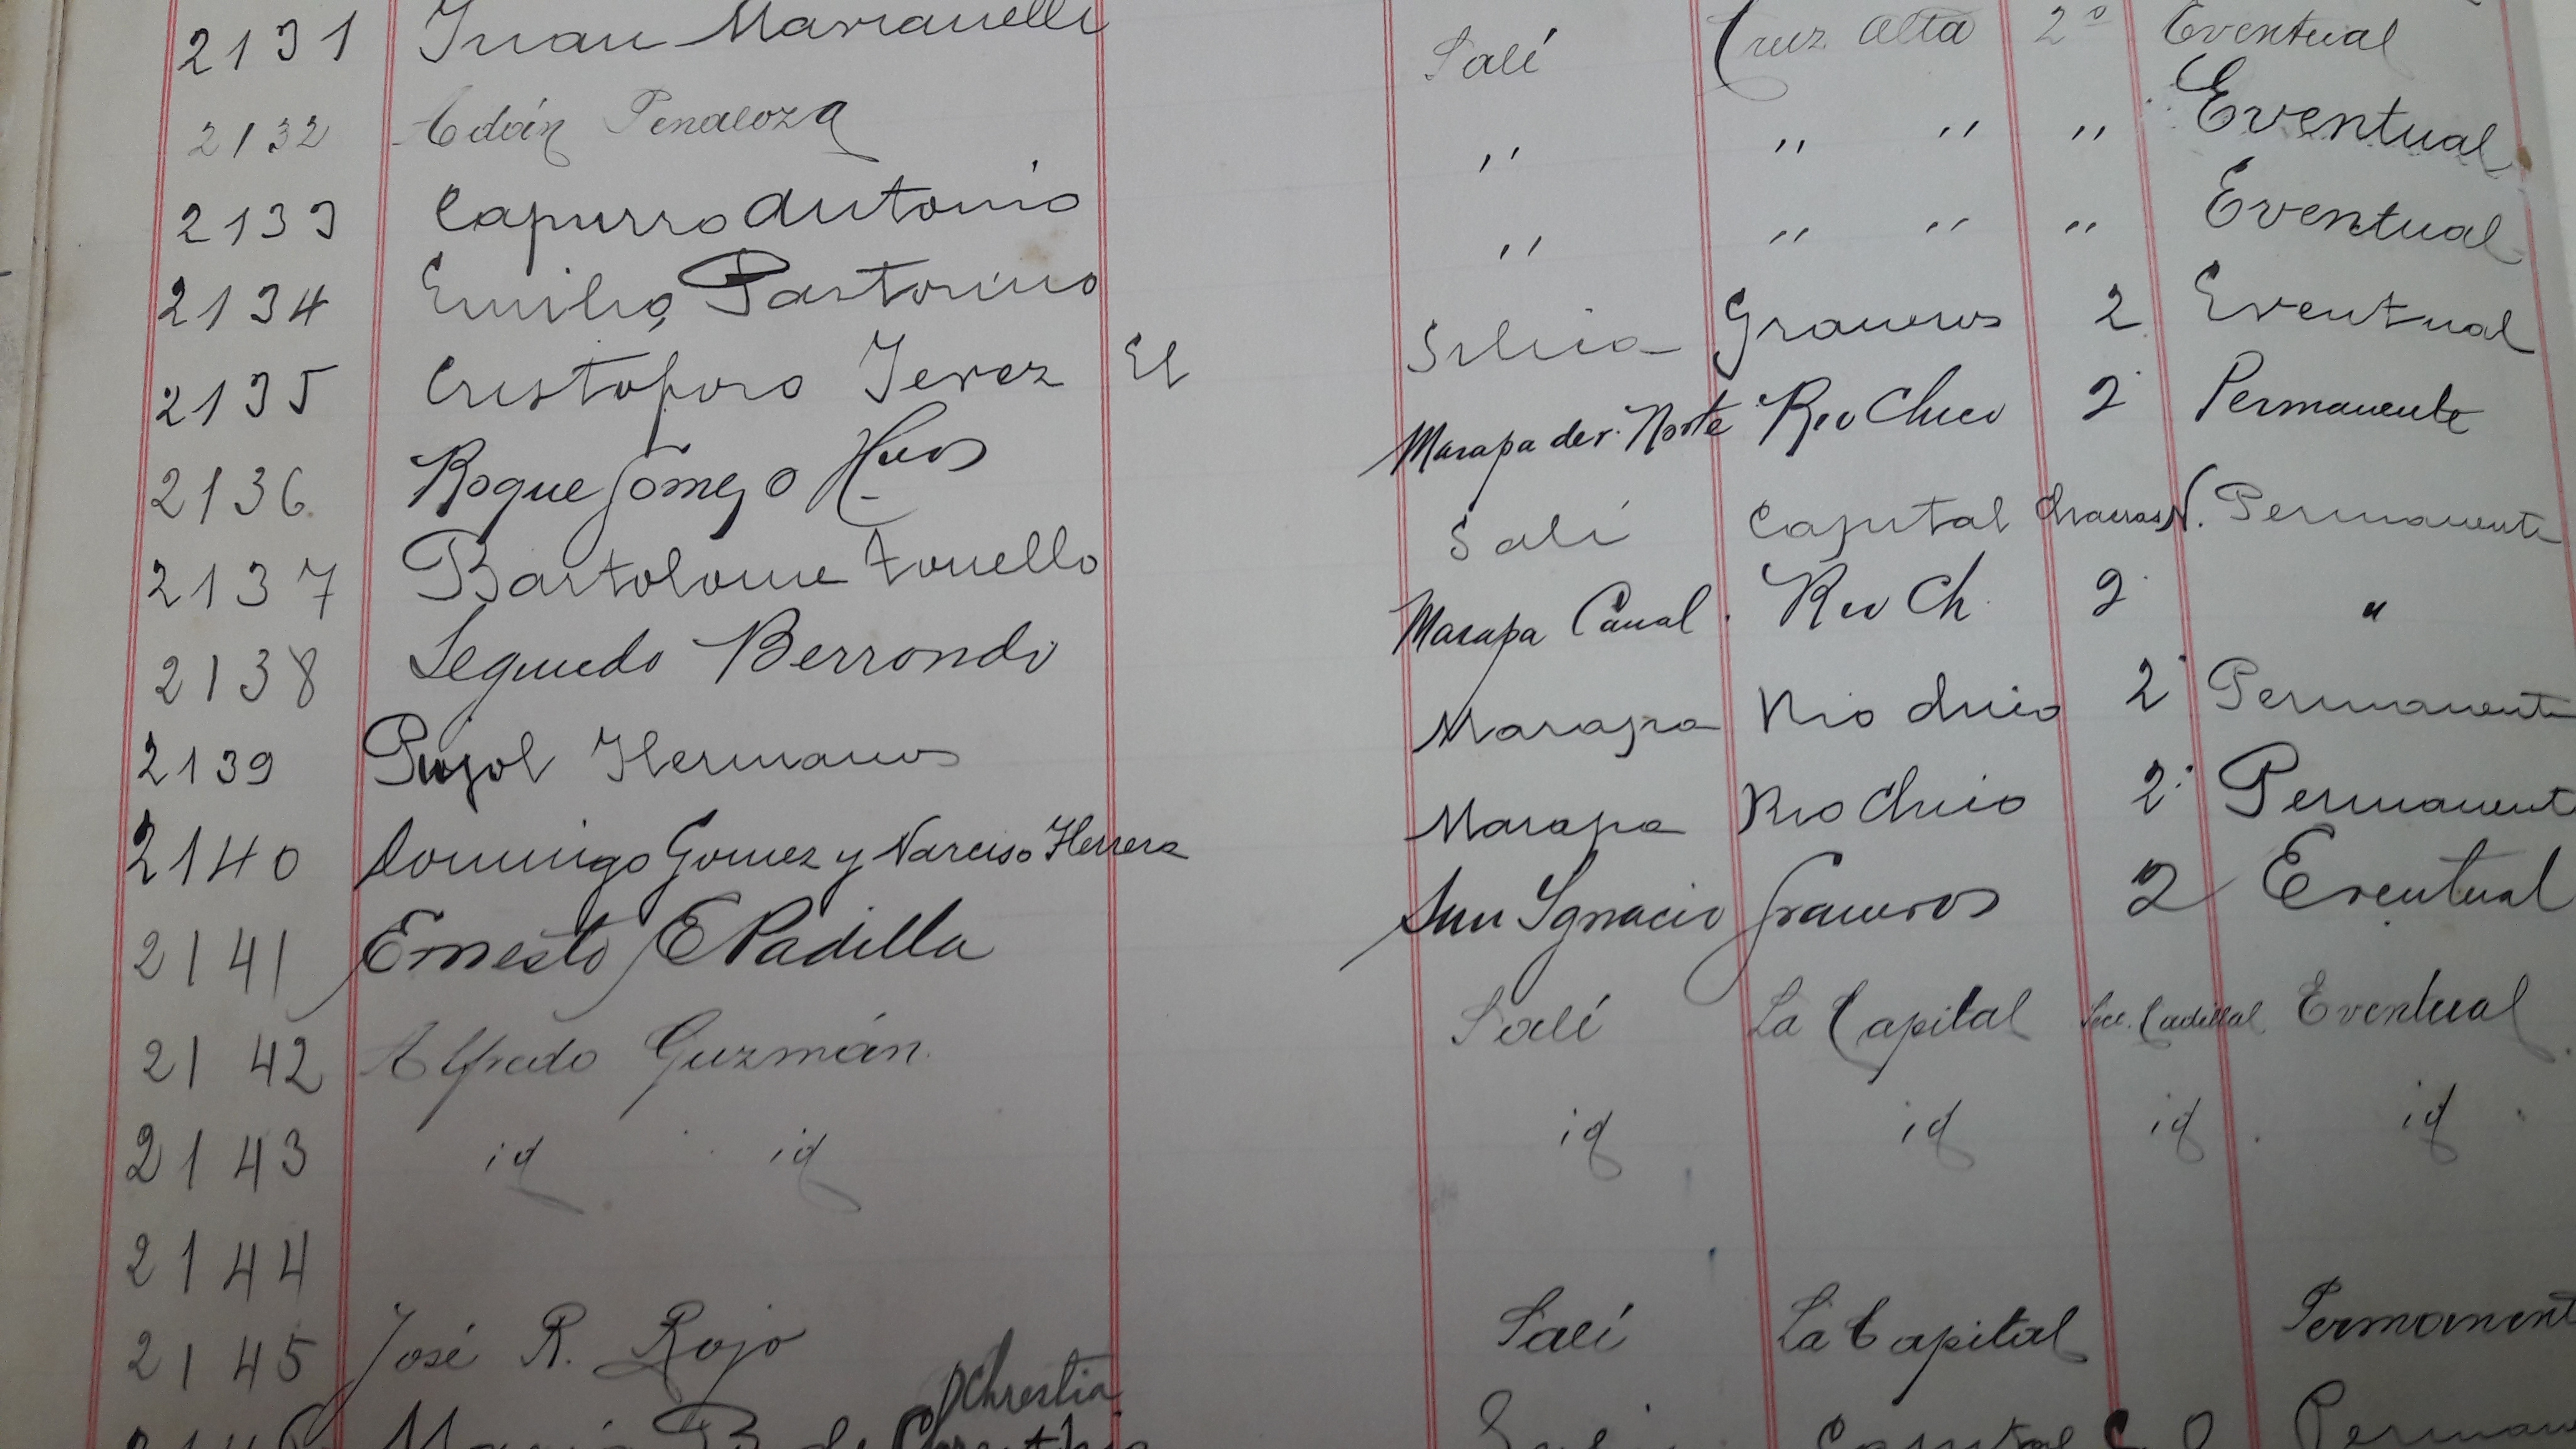 2131 Juan Marranelli Salí Cruz Alta 2º Eventual
2132 Adán Penaloza ,, ,, ,, ,, Eventual
2133 Capurro Antonio ,, ,, ,, ,, Eventual
2134 Emilio Pastorino Graneros 2 Eventual
2135 Cristoforo Jerez El Marapa der. Norte Rio Chico 2 Permanente
2136 Roque Gomez o Hnos Salí Capital N. Permanente
2137 Bartolome Tonello Marapa Canal Rio Ch. 2 "
2138 Segundo Berrondo Marapa Rio Chico 2 Permanente
2139 Pujol Hermanos Marapa Rio Chico 2 Permanent
2140 Domingo Gomez y Narciso Herrera San Ignacio Graneros 2 Eventual
2141 Ernesto E Padilla Salí La Capital Cadillal Eventual
2142 Alfredo Guzmán. id id id id
2143 id id
2144
2145 José R. Rojo Salí La Capital Permanent
Chrestia
María B. de Capital Perman